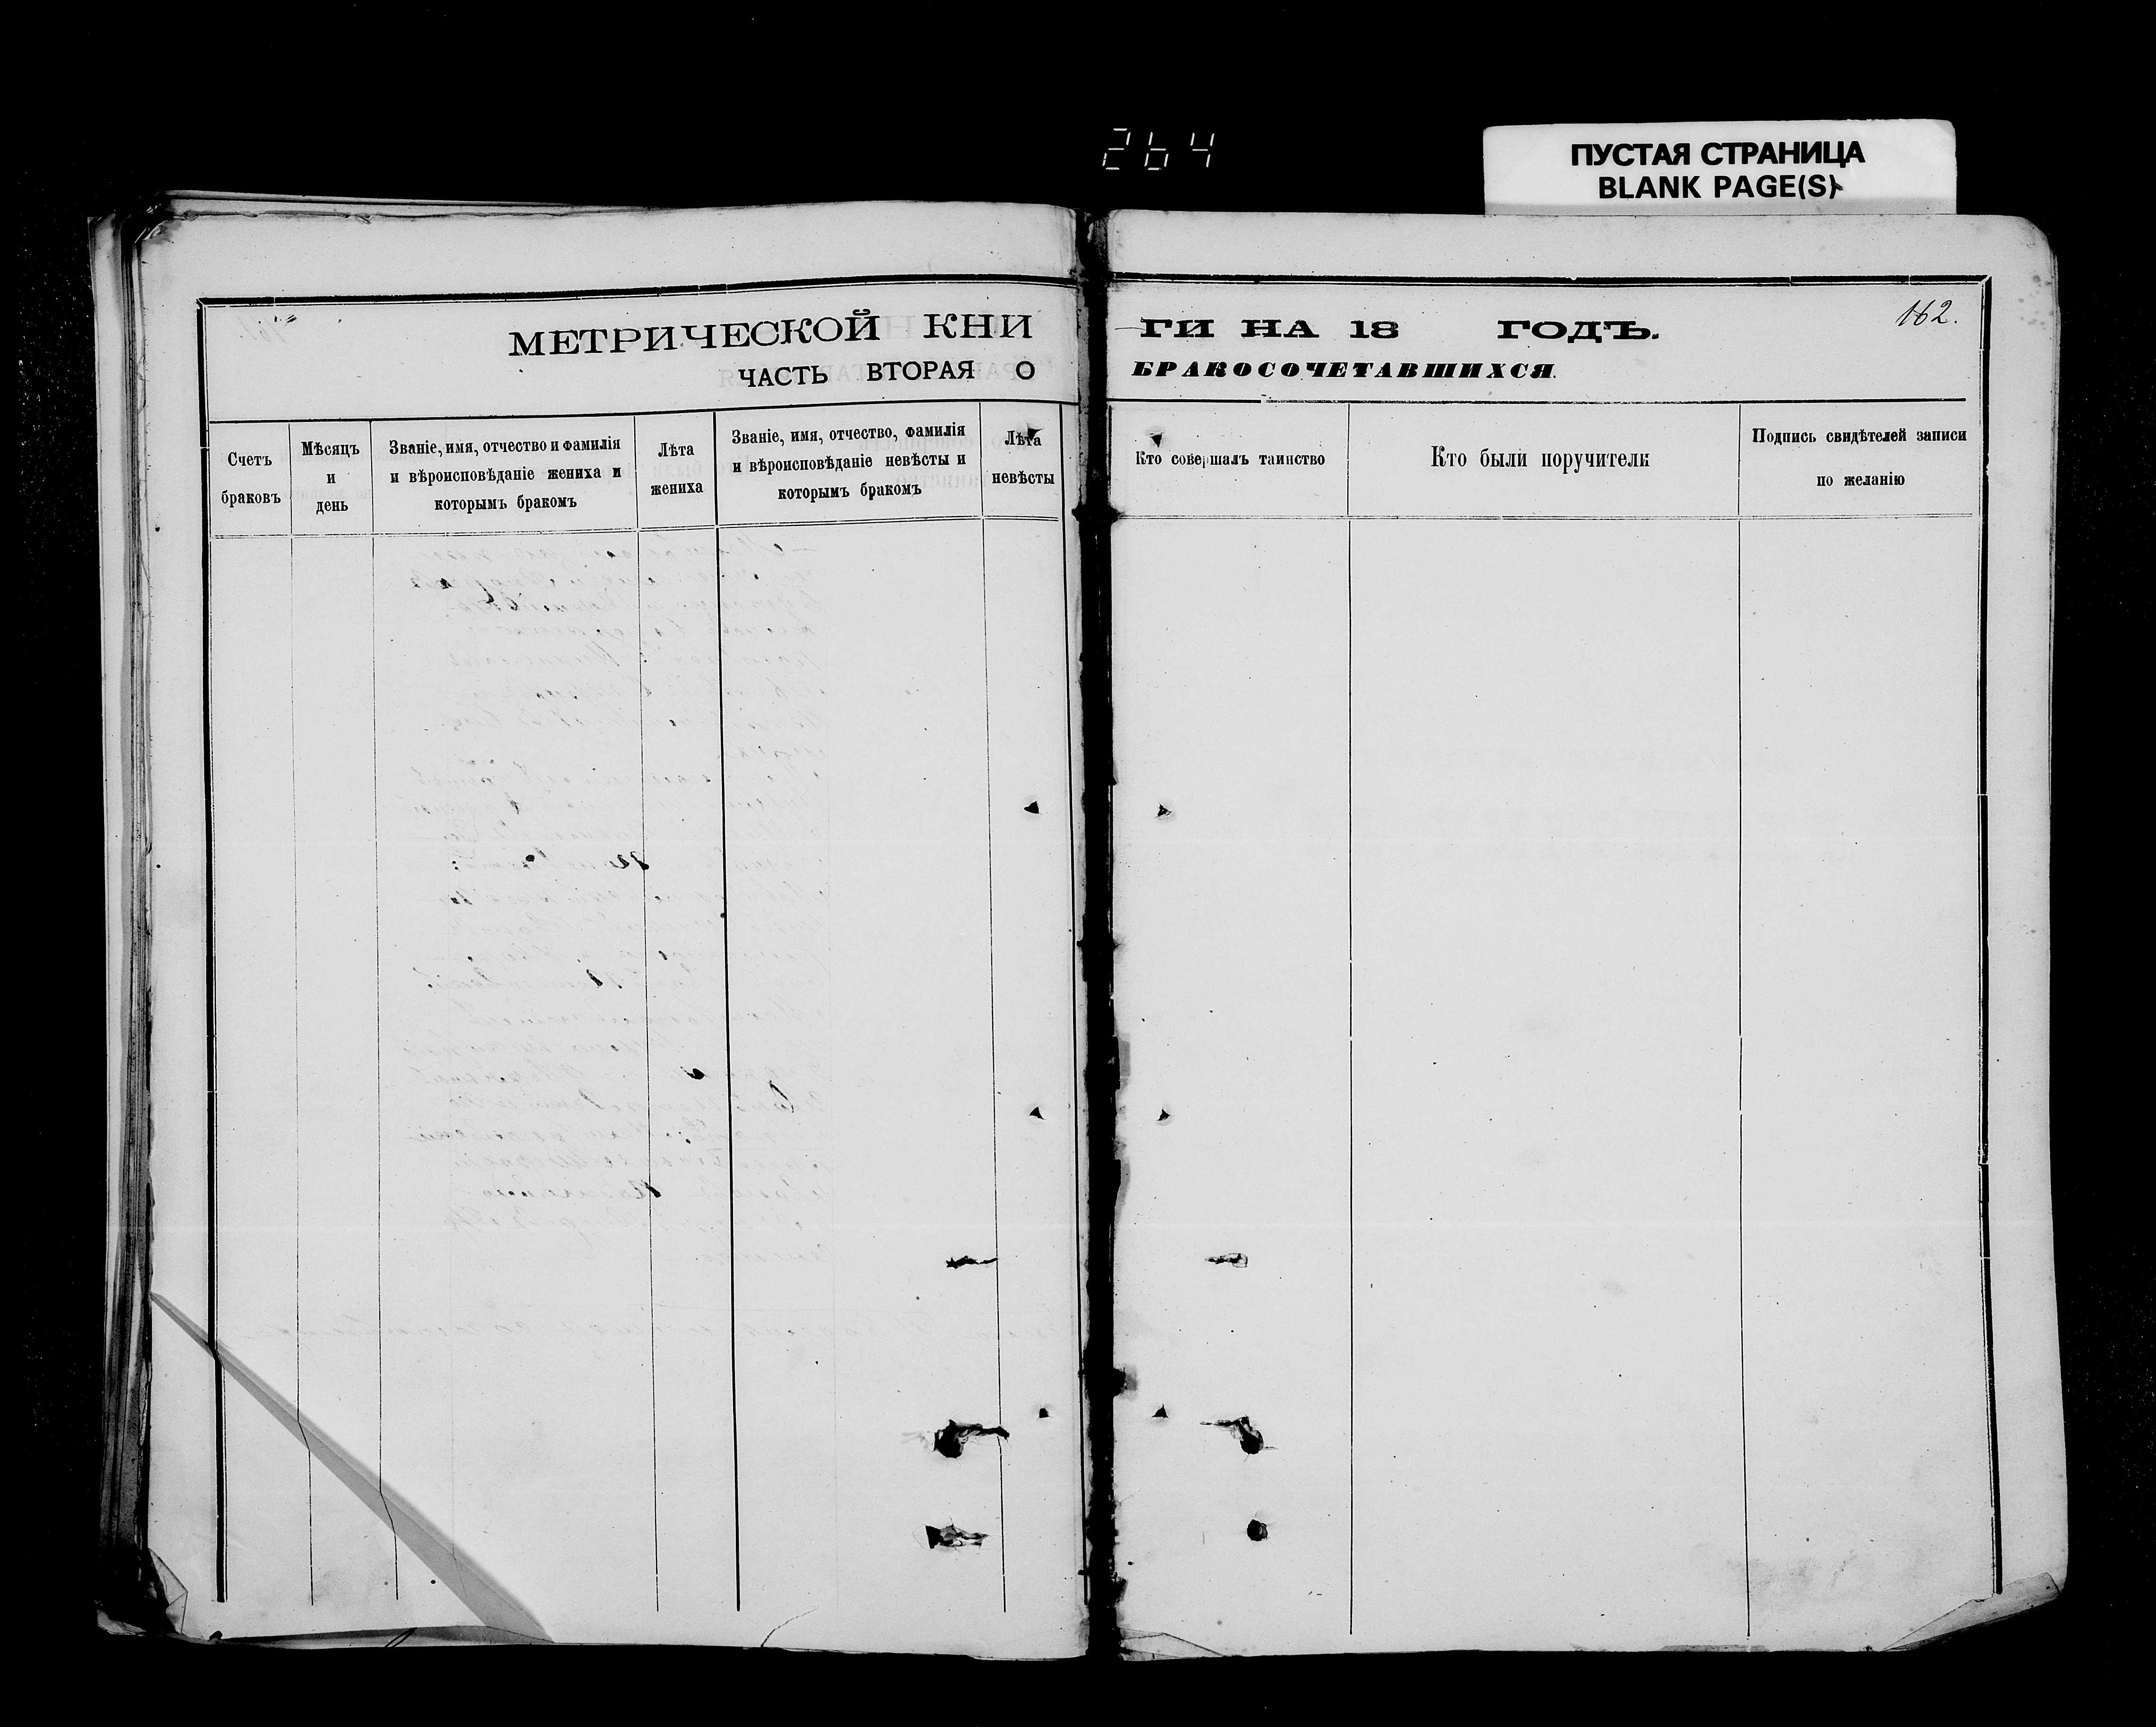 264
ПУСТАЯ СТРАНИЦА
BLANK PAGE(S)
МЕТРИЧЕСКОЙ КНИ ГИ НА 18 ГОДЪ.
162.
ЧАСТЬ ВТОРАЯ О БРАКОСОЧЕТАВШИХСЯ.
Счетъ
браковъ
Мѣсяцъ
и
день
Званіе, имя, отчество и фамилія
и вѣроисповѣданіе жениха и
которымъ бракомъ
Лѣта
жениха
Званіе, имя, отчество, фамилія
и вѣроисповѣданіе невѣсты и
которымъ бракомъ
Лѣта
невѣсты
Кто совершалъ таинство
Кто были поручители
Подпись свидѣтелей записи
по желанію